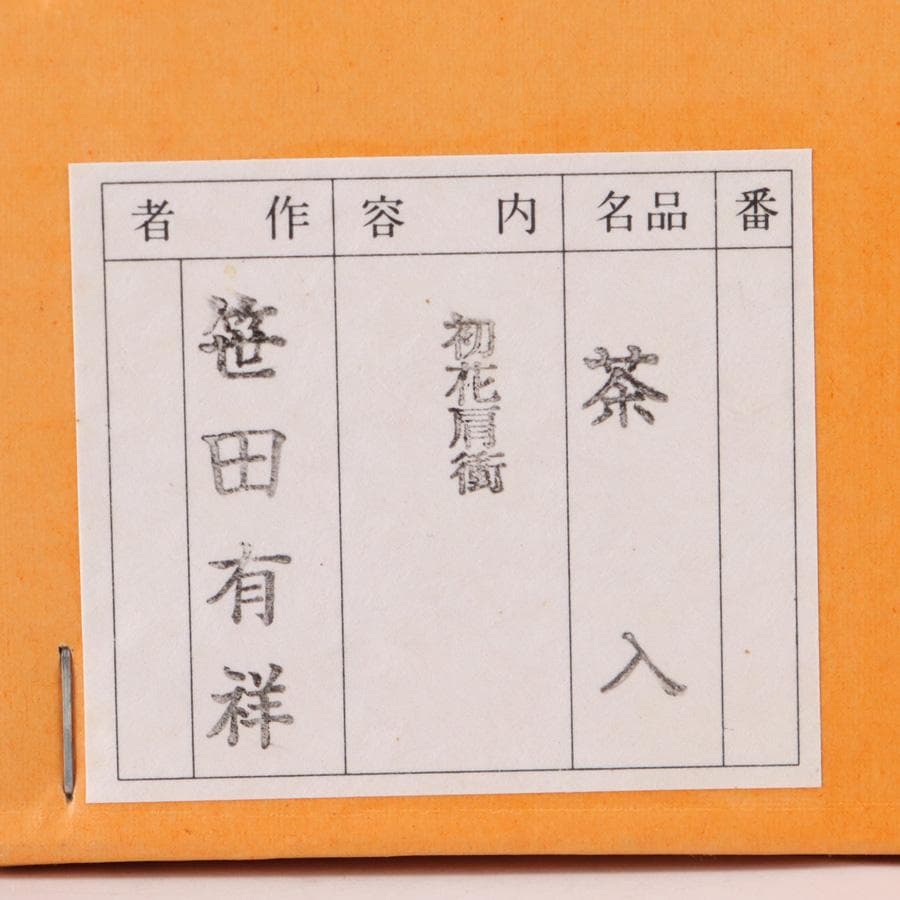 番
品名
内容
作者
茶入
初花肩衝
笹田有祥